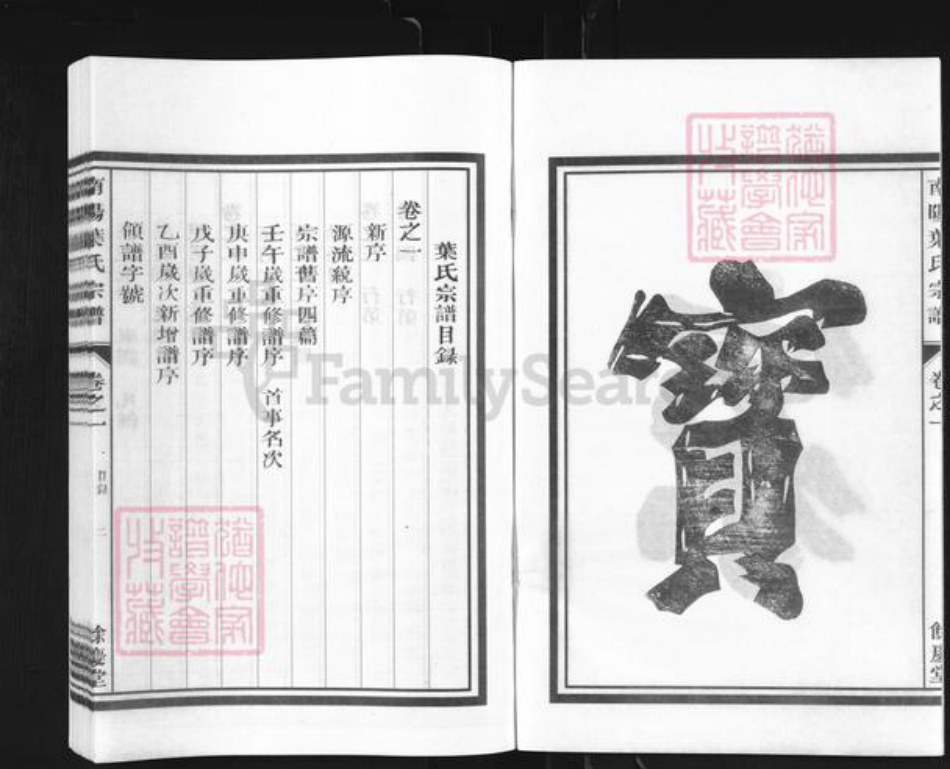 寶
南陽葉氏宗譜
卷之一
餘慶堂
葉氏宗譜目錄
卷之一
新序
源流統序
宗譜舊序四篇
壬午歲重修譜序 首事名次
庚申歲重修譜序
戊子歲重修譜序
乙酉歲次新增譜序
領譜字號
南陽葉氏宗譜
卷之一
目錄
二
餘慶堂
FamilySear
譜學會
收藏
譜學會
收藏